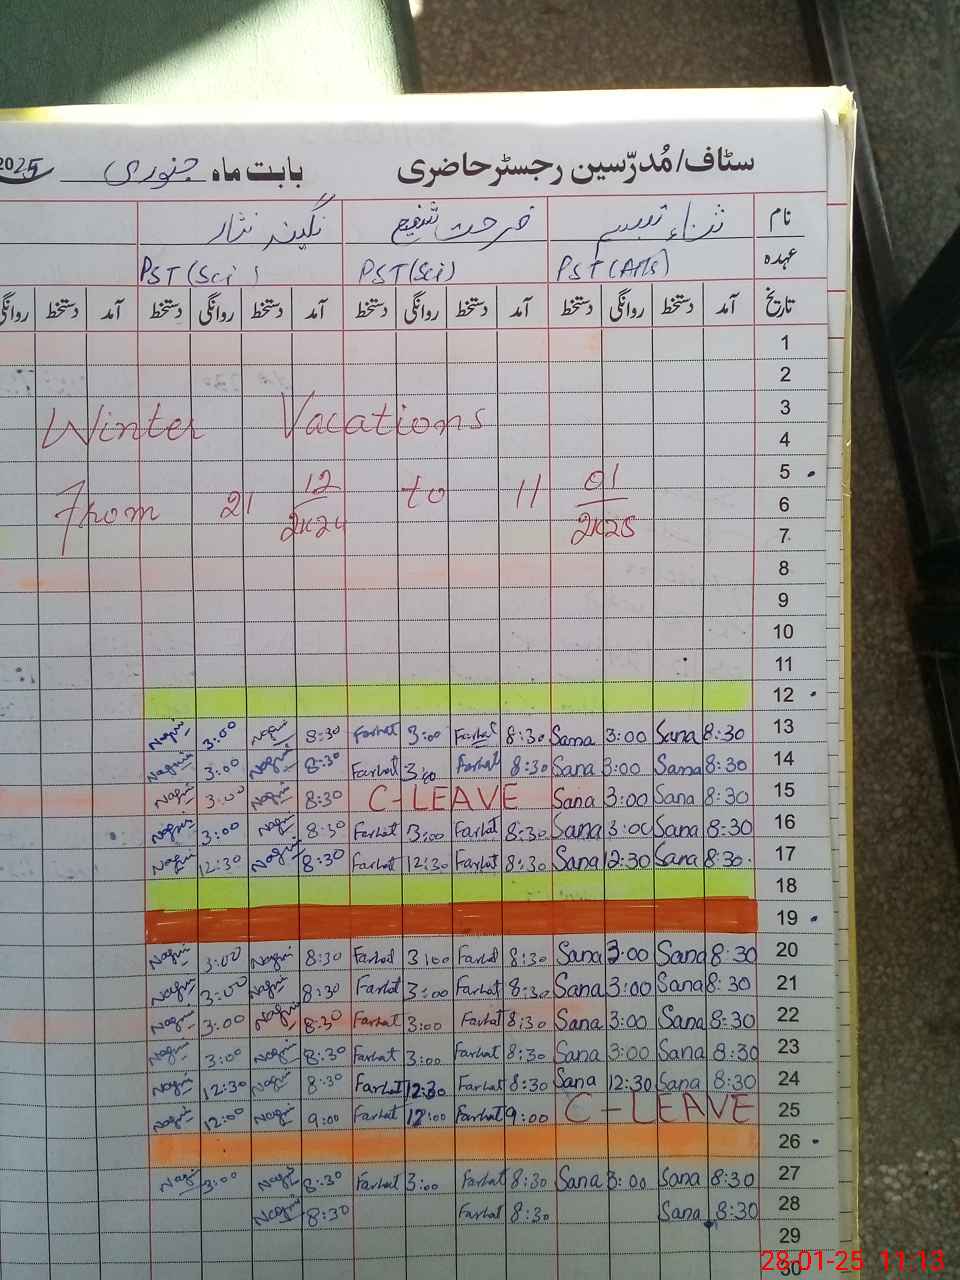 سٹاف/مُدرّسین رجسٹر حاضری بابت ماہ جنوری 2025
نام ثناء تبسم فرحت شفیع نگینہ نثار
عہدہ PST (Arts) PST (Sci) PST (Sci)
تاریخ آمد دستخط روانگی دستخط آمد دستخط روانگی دستخط آمد دستخط روانگی دستخط آمد دستخط روانگی
1
2
3
Winter Vacations
4
5
From 21 12/2K24 to 11 01/2K25
6
7
8
9
10
11
12
Nagin 3:00 Nagin 8:30 Farhat 3:00 Farhat 8:30 Sana 3:00 Sana 8:30 13
Nagin 3:00 Nagin 8:30 Farhat 3:00 Farhat 8:30 Sana 3:00 Sana 8:30 14
Nagin 3:00 Nagin 8:30 C-LEAVE Sana 3:00 Sana 8:30 15
Nagin 3:00 Nagin 8:30 Farhat 3:00 Farhat 8:30 Sana 3:00 Sana 8:30 16
Nagin 12:30 Nagin 8:30 Farhat 12:30 Farhat 8:30 Sana 12:30 Sana 8:30 17
18
19
Nagin 3:00 Nagin 8:30 Farhat 3:00 Farhat 8:30 Sana 3:00 Sana 8:30 20
Nagin 3:00 Nagin 8:30 Farhat 3:00 Farhat 8:30 Sana 3:00 Sana 8:30 21
Nagin 3:00 Nagin 8:30 Farhat 3:00 Farhat 8:30 Sana 3:00 Sana 8:30 22
Nagin 3:00 Nagin 8:30 Farhat 3:00 Farhat 8:30 Sana 3:00 Sana 8:30 23
Nagin 12:30 Nagin 8:30 Farhat 12:30 Farhat 8:30 Sana 12:30 Sana 8:30 24
Nagin 12:00 Nagin 9:00 Farhat 12:00 Farhat 9:00 C-LEAVE 25
26
Nagin 3:00 Nagin 8:30 Farhat 3:00 Farhat 8:30 Sana 3:00 Sana 8:30 27
Nagin 8:30 Farhat 8:30 Sana 8:30 28
29
30
28-01-25 11:13